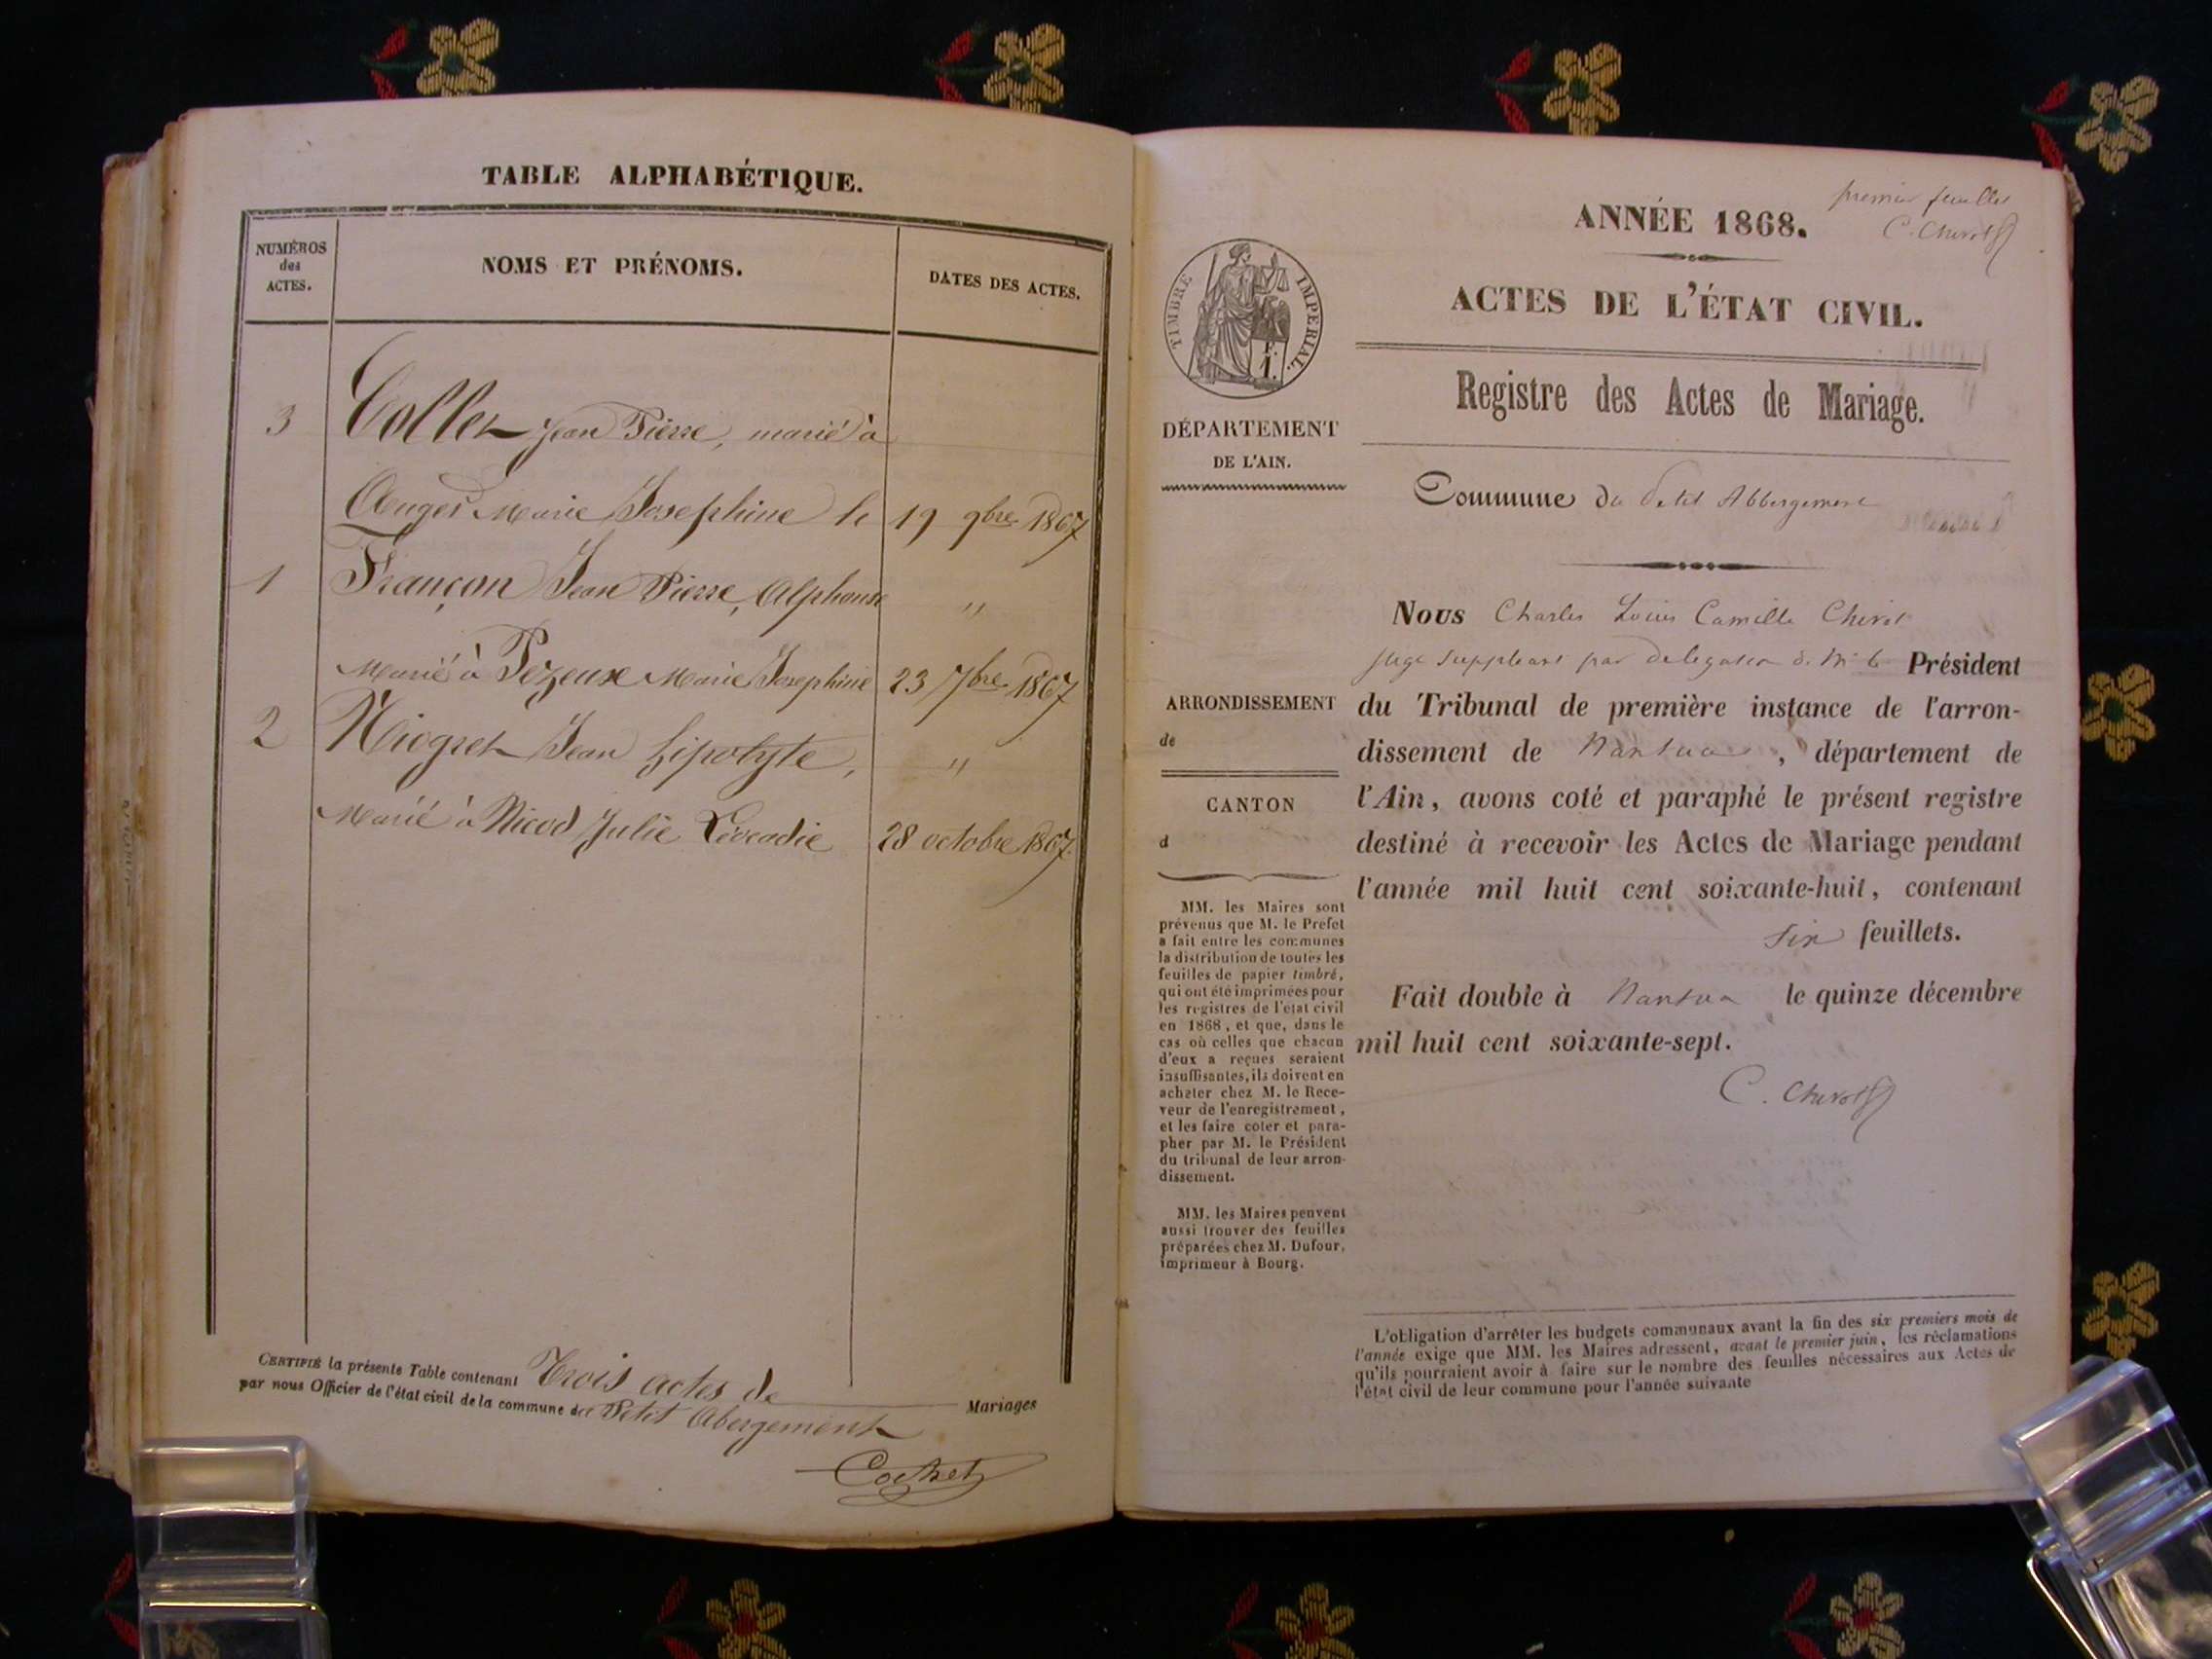 TABLE ALPHABÉTIQUE.
NUMÉROS
des
ACTES.
NOMS ET PRÉNOMS.
DATES DES ACTES.
3 Collet Jean Pierre, marié à
Auger Marie Josephine le 19 9bre 1867
1 Françon Jean Pierre, Alphonse "
Marié à Pezeux Marie Josephine 23 7bre 1867
2 Niogret Jean hipolyte, "
Marié à Nicod Julie Léocadie 28 octobre 1867.
CERTIFIÉ la présente Table contenant Trois actes de Mariages
par nous Officier de l'état civil de la commune du Petit Abergement
Cochet
premier feuillet
C. Chevrot
ANNÉE 1868.
ACTES DE L'ÉTAT CIVIL.
TIMBRE IMPERIAL.
F.
1.
Registre des Actes de Mariage.
DÉPARTEMENT
DE L'AIN.
Commune du Petit Abbergement
Nous Charles Louis Camille
juge suppléant par délégation de Mr le Président
ARRONDISSEMENT
de
du Tribunal de première instance de l'arron-
dissement de Nantua, département de
CANTON
d
l'Ain, avons coté et paraphé le présent registre
destiné à recevoir les Actes de Mariage pendant
l'année mil huit cent soixante-huit, contenant
six feuillets.
Fait double à Nantua le quinze décembre
mil huit cent soixante-sept.
C. Chevrot
MM. les Maires sont
prévenus que M. le Préfet
a fait entre les communes
la distribution de toutes les
feuilles de papier timbré,
qui ont été imprimées pour
les registres de l'état civil
en 1868, et que, dans le
cas où celles que chacun
d'eux a reçues seraient
insuffisantes, ils doivent en
acheter chez M. le Rece-
veur de l'enregistrement,
et les faire coter et para-
pher par M. le Président
du tribunal de leur arron-
dissement.
MM. les Maires peuvent
aussi trouver des feuilles
préparées chez M. Dufour,
imprimeur à Bourg.
L'obligation d'arrêter les budgets communaux avant la fin des six premiers mois de
l'année exige que MM. les Maires adressent, avant le premier juin, les réclamations
qu'ils pourraient avoir à faire sur le nombre des feuilles nécessaires aux Actes de
l'état civil de leur commune pour l'année suivante